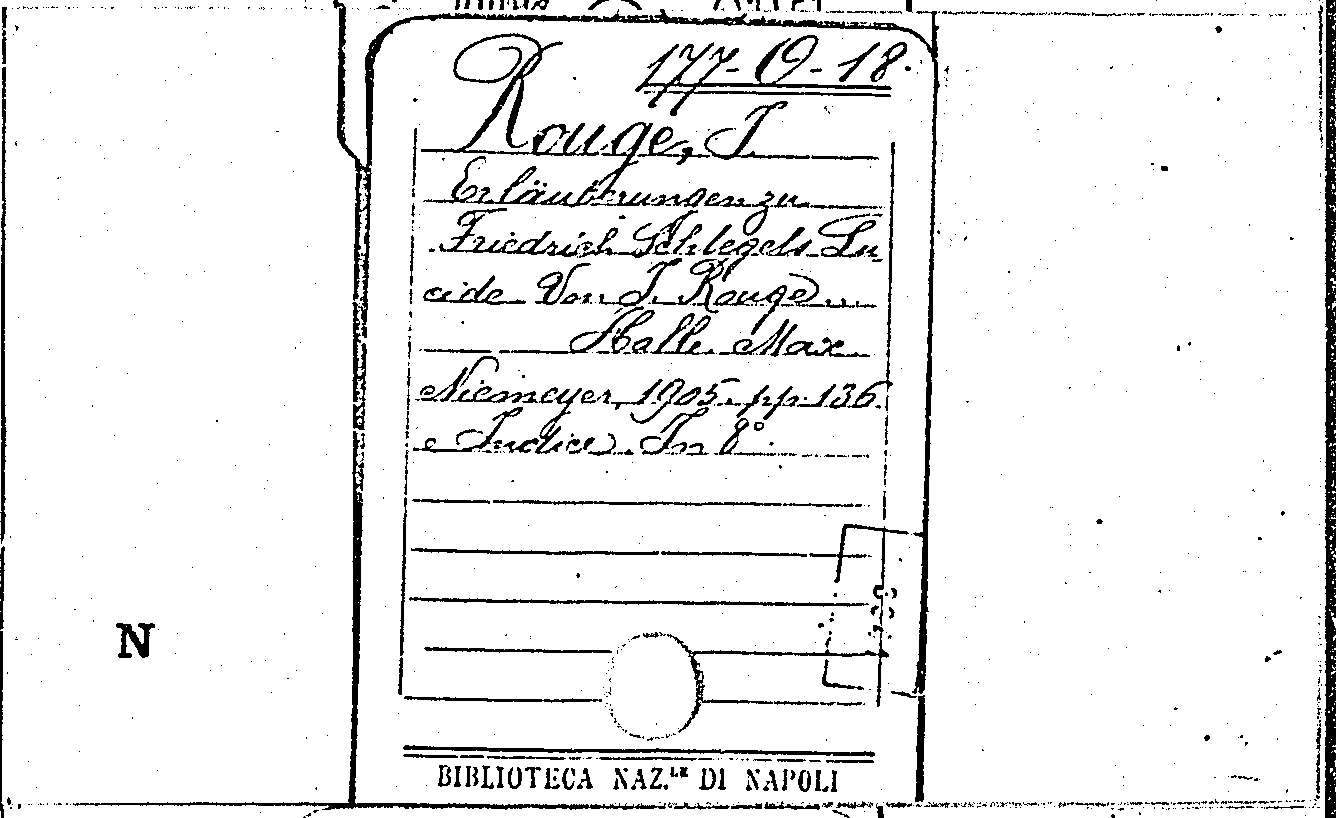 177-O-18.
Rouge, J.
Erläuterungen zu
Friedrich Schlegels Lu
cide Von J. Rouge...
Halle. Max
Niemeyer, 1905. pp. 136.
e Indice. In 8°.
N
BIBLIOTECA NAZ.LE DI NAPOLI